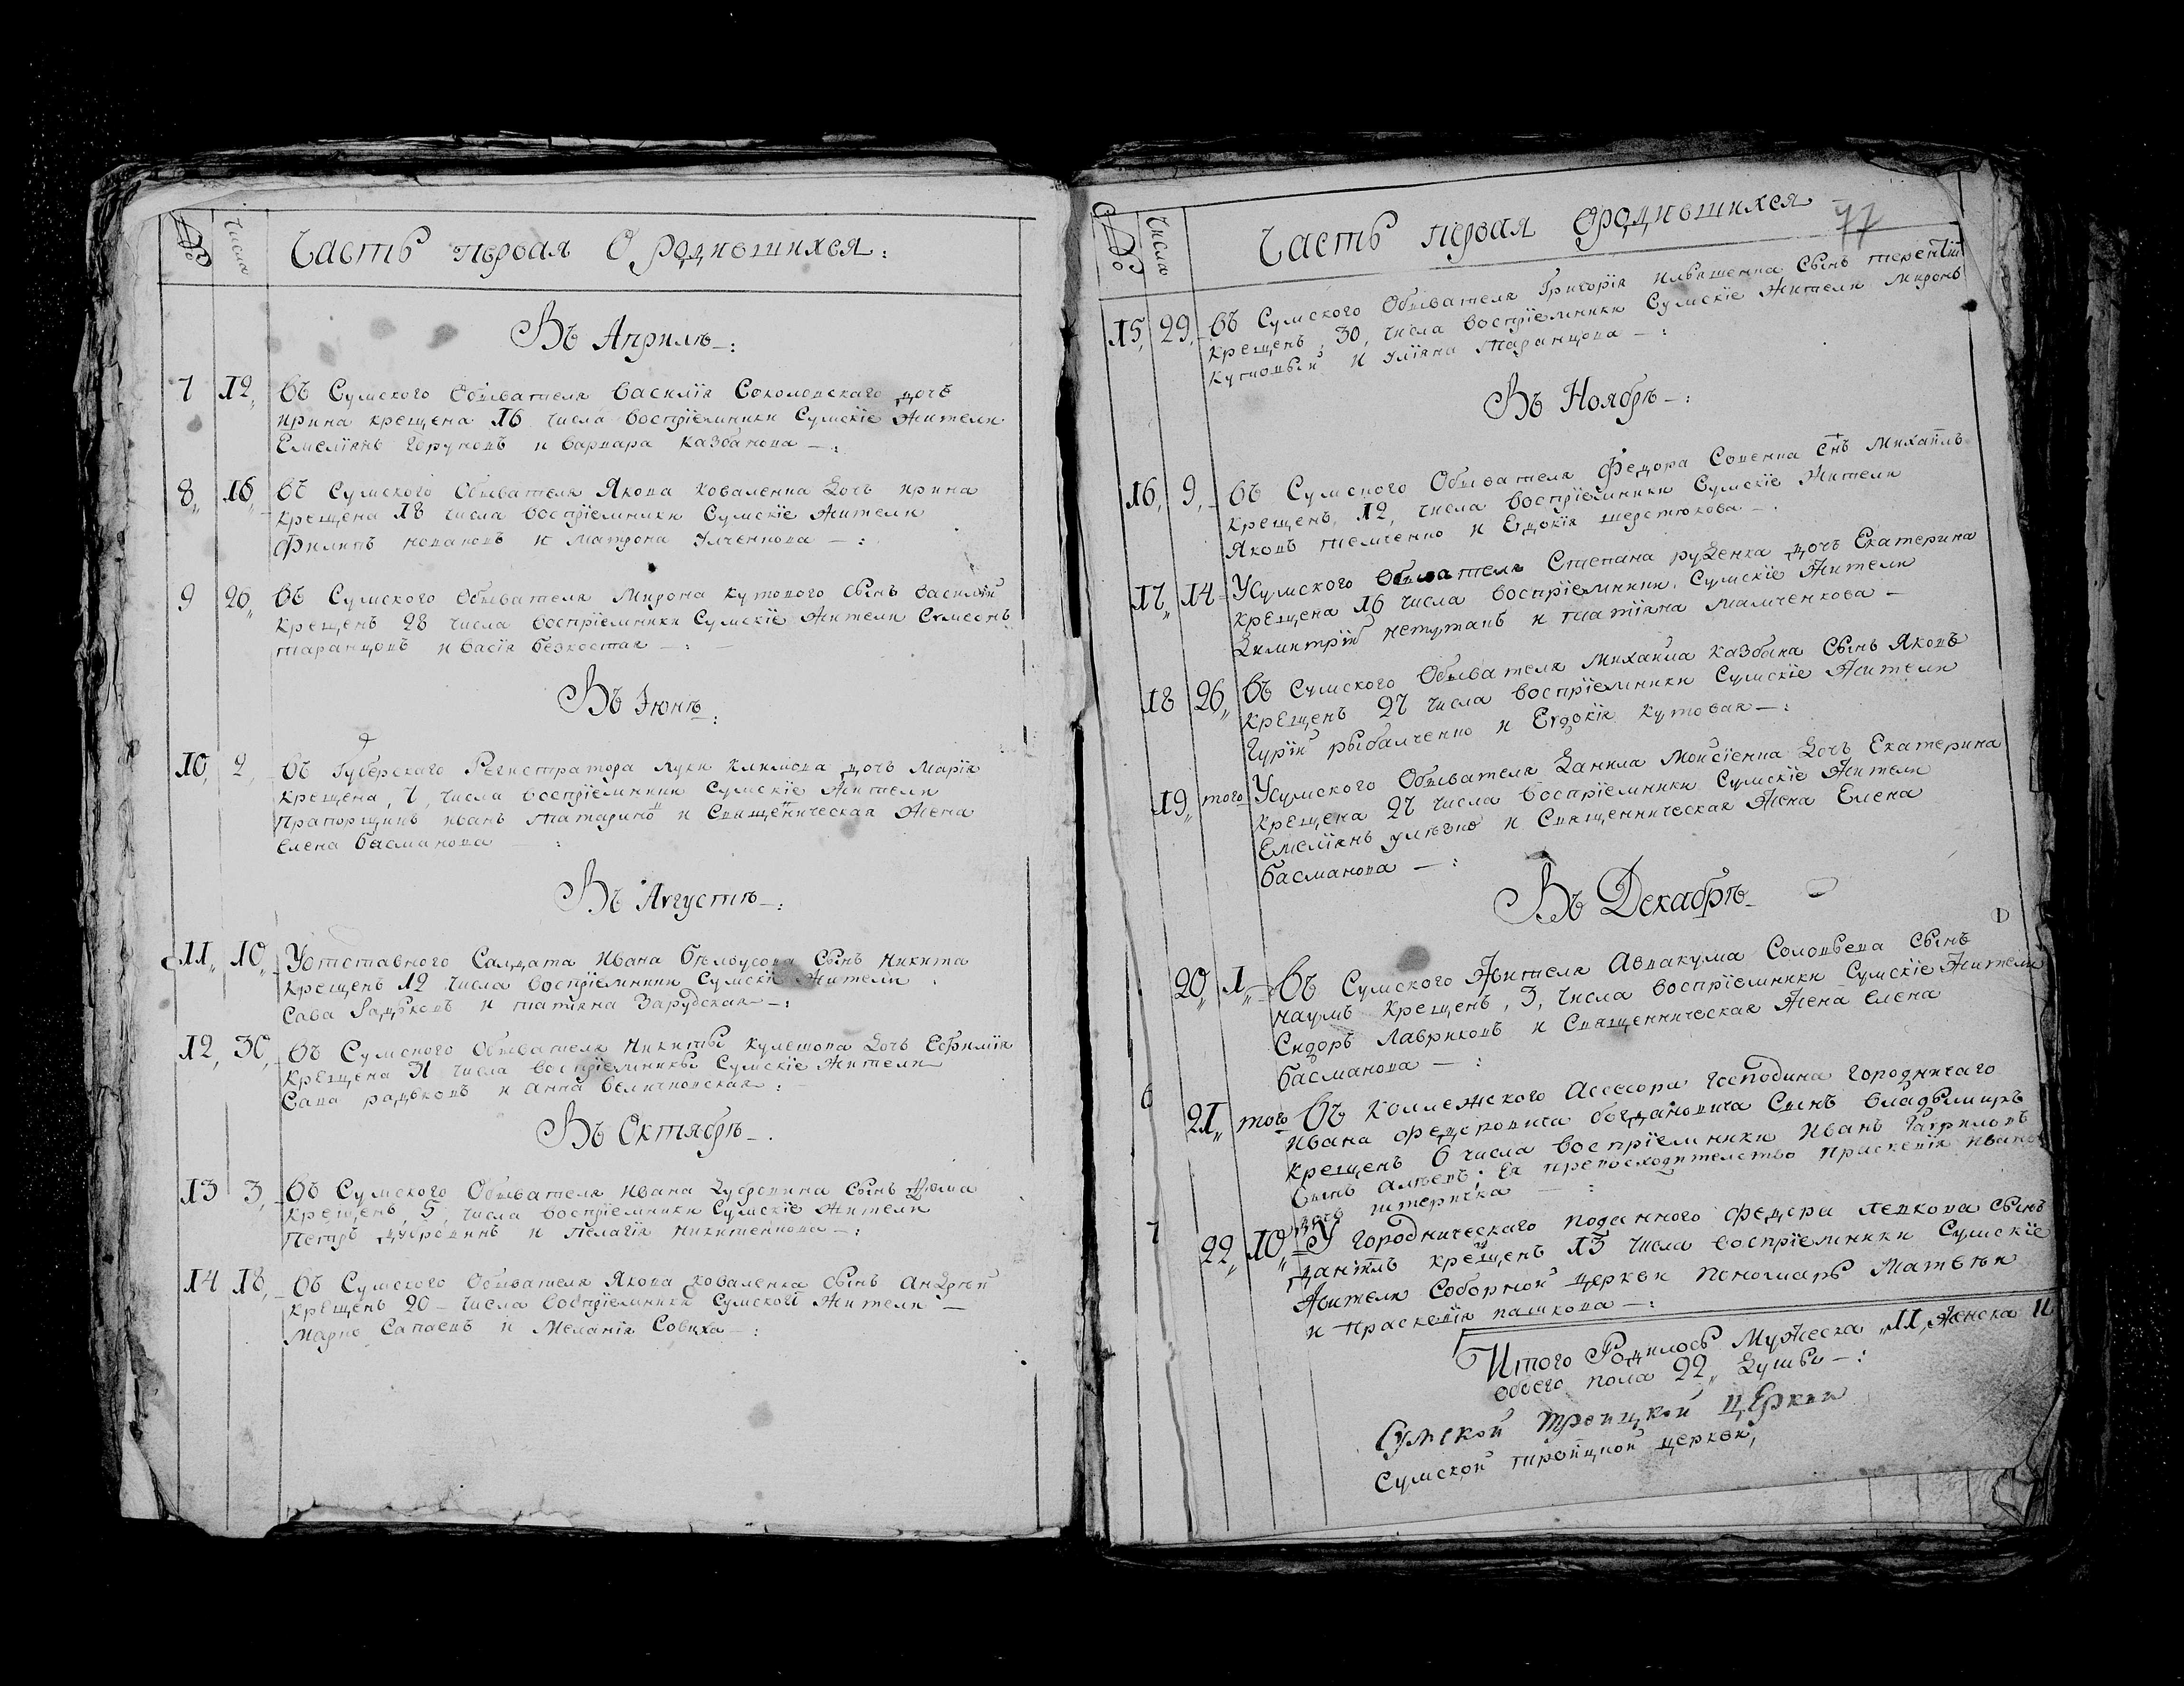 № Числа Часть первая О родившихся:
Въ Априлѣ
7 12 Въ Сумского Обывателя Василія Соколовскаго дочь
ирина крещена 16 числа воспріемники Сумскіе жители
Емеліянъ Горуновъ и варвара казбанова
8 16 Въ Сумского Обывателя Якова коваленка дочь ирина
крещена 18 числа воспріемники Сумскіе жители
Филипъ новаковъ и матрона
9 26 Въ Сумского Обывателя Мирона кутового сынъ василій
крещенъ 28 числа воспріемники Сумскіе жители Сѵмеонъ
таранцовъ и васіи безкостая
Въ Іюнѣ
10 2 Въ Губерского Регистратора луки климова дочь Марія
крещена 7 числа воспріемники Сумскіе жители
Прапорщикъ иванъ татаринъ и Священическая жена
елена басманова
Въ Августѣ
11 10 У отставного Салдата ивана бѣлоусова сынъ никита
крещенъ 12 числа воспріемники Сумскіе жители
Сава Радковъ и татіяна Зарудская
12 30 Въ Сумского Обывателя никиты кулешова дочь Ефимія
крещена 31 числа воспріемники Сумскіе жители
Сава радковъ и анна величковская
Въ Октябрѣ
13 3 Въ Сумского Обывателя ивана дубровина сынъ Фома
крещенъ 5 числа воспріемники Сумскіе жители
Петръ дубровинъ и пелагія никитенкова
14 18 Въ Сумского Обывателя Якова коваленка сынъ андрѣй
крещенъ 20 числа воспріемники Сумскои жители
Марко Сапаевъ и Меланія Совиха
№ Числа Часть первая О родившихся 77
15 29 Въ Сумского Обывателя Григорія ильяшенка сынъ терентій
крещенъ 30 числа воспріемники Сумскіе жители Миронъ
кутовый и уліяна таранцова
Въ Ноябрѣ
16 9 Въ Сумского Обывателя Федора Совенка снъ михаилъ
крещенъ 12 числа воспріемники Сумскіе жители
Яковъ темченко и Евдокія шерстюкова
17 14 У Сумского Обывателя Степана руденка дочь Екатерина
крещена 16 числа воспріемники Сумскіе жители
Димитрій нетутаевъ и татіяна мамченкова
18 26 Въ Сумского Обывателя Михаила казбана сынъ Яковъ
крещенъ 27 числа воспріемники Сумскіе жители
Гурій рыбалченко и Евдокія кутовая
19 того У Сумского Обывателя Данила моисіенка дочь Екатерина
крещена 27 числа воспріемники Сумскіе жители
Емеліянъ и Священническая жена Елена
басманова
Въ Декабрѣ
20 1 Въ Сумского жителя Авакума Соловьева сынъ
наумъ крещенъ 3 числа воспріемники Сумскіе жители
Сидоръ Лавриковъ и Священническая жена елена
басманова
21 того Въ Колежского Асесора господина городничаго
ивана федоровича богдановича сынъ владымиръ
крещенъ 6 числа воспріемники иванъ гавриловъ
сынъ и Ея превосходителство праскевія иванова
дочь
22 10 У городническаго поданного федора левкова сынъ
данїилъ крещенъ 13 числа воспріемники Сумскіе
жители Соборной церкви пономарь Матвѣй
и праскевія пашкова
Итого Родилось Мужеска 11 женска 11
обоего пола 22 душы
Сумской троицкой церкви
Сумской троицкой церкви,